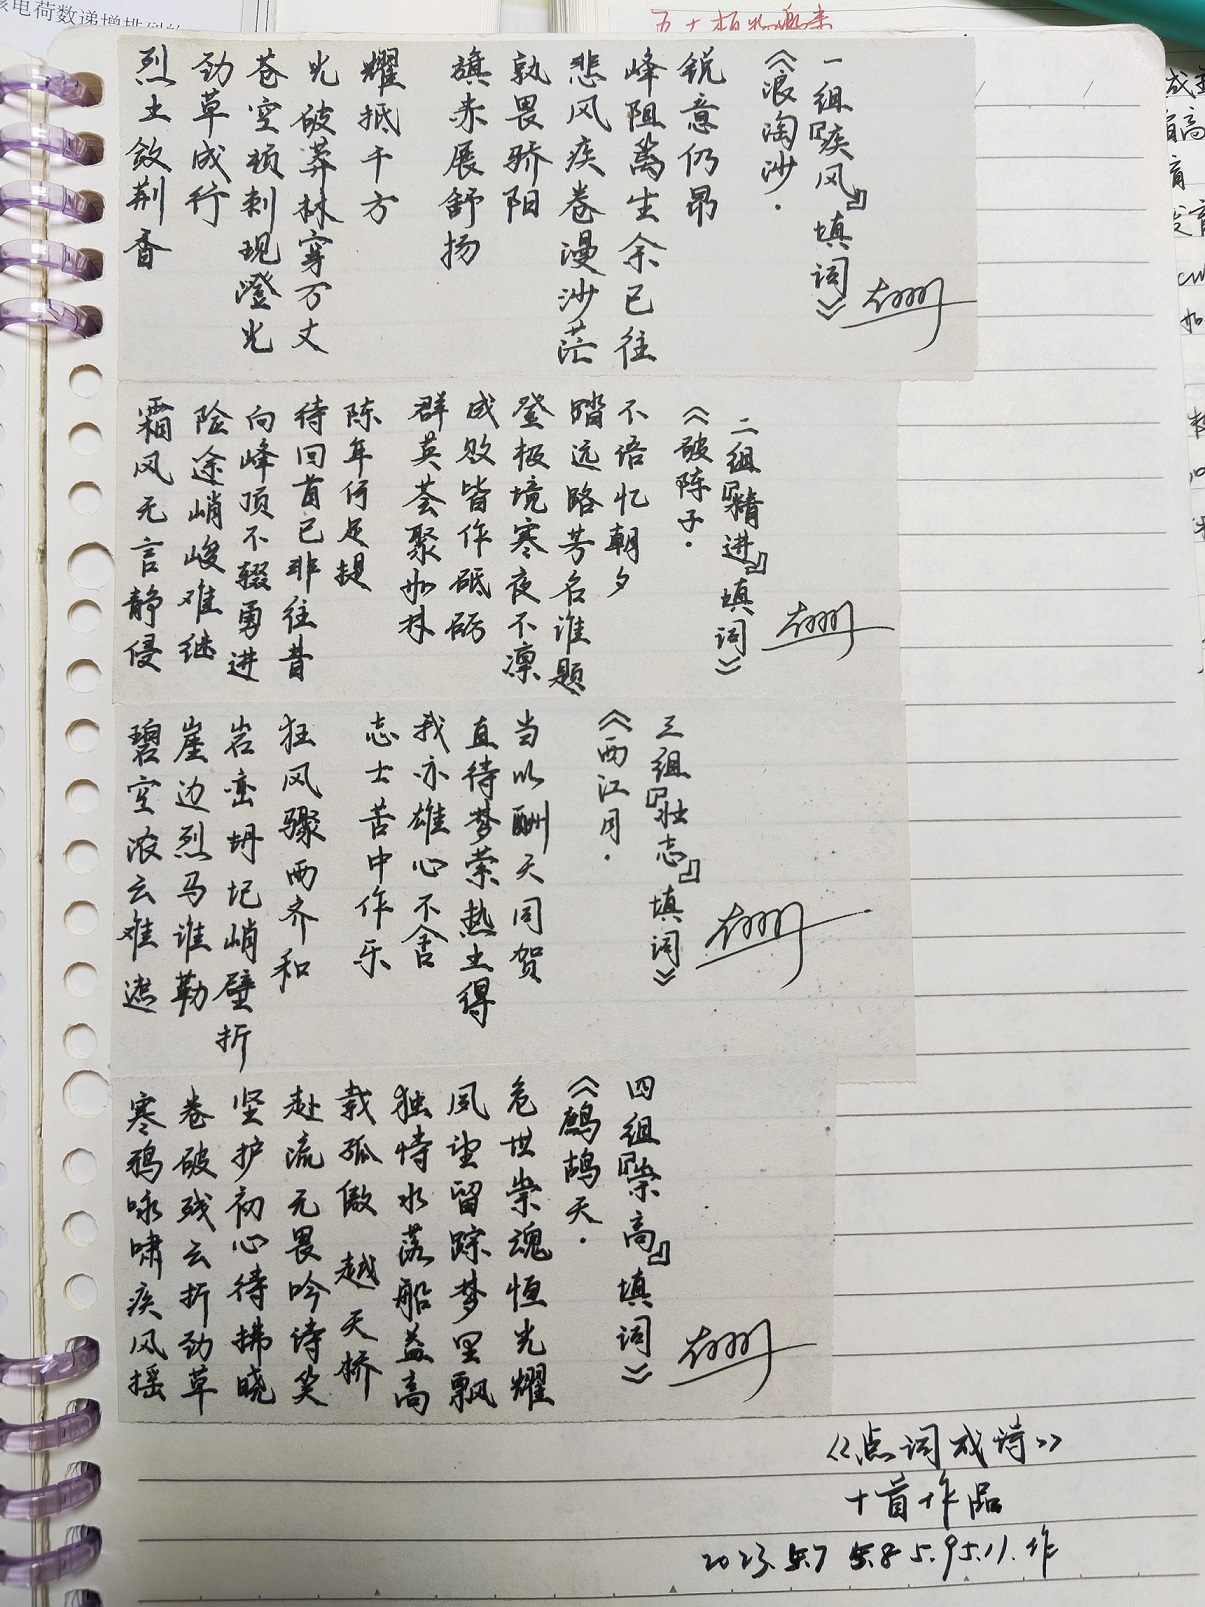 烈土敛荆香
劲草成行
苍空顿刺现澄光
光破莽林穿万丈
耀抵千方
旗赤展舒扬
孰畏骄阳
悲风疾卷漫沙茫
峰阻萬生余已往
锐意仍昂
《浪淘沙·
一组『疾风』填词》
霜风无言静侵
险途峭峻难继
向峰顶不辍勇进
待回首已非往昔
陈年何足提
群英荟聚如林
成败皆作砥砺
登极境寒夜不凛
踏远路芳名谁题
不语忆朝夕
《破阵子·
二组『精进』填词》
碧空浓云难遮
崖边烈马谁勒
岩峦坍圮峭壁折
狂风骤雨齐和
志士苦中作乐
我亦雄心不舍
直待梦萦热土得
当以酬天同贺
《西江月·
三组『壮志』填词》
寒鸦咏啸疾风摇
卷破残云折劲草
坚护初心待拂晓
赴流无畏吟诗笑
载孤傲 越天桥
独恃水落船益高
夙望留踪梦里飘
危世崇魂恒光耀
《鹧鸪天·
四组『崇高』填词》
《点词成诗》
十首作品
2023.5.7 5.8 5.9 5.11.作
电荷数递增排列